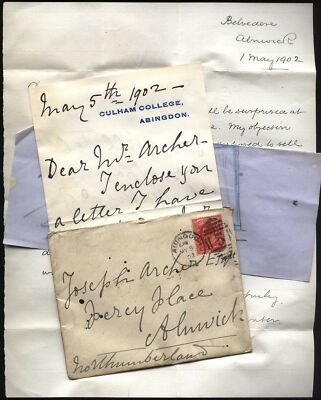 Belvedere
Alnwick
1 May 1902
ll be surprised at
My objection
to sell
May 5th 1902 —
CULHAM COLLEGE,
ABINGDON.
Dear Mr Archer —
I enclose you
a letter I have
ABINGDON
Joseph Archer Esqre
Percy Place
Alnwick
Northumberland